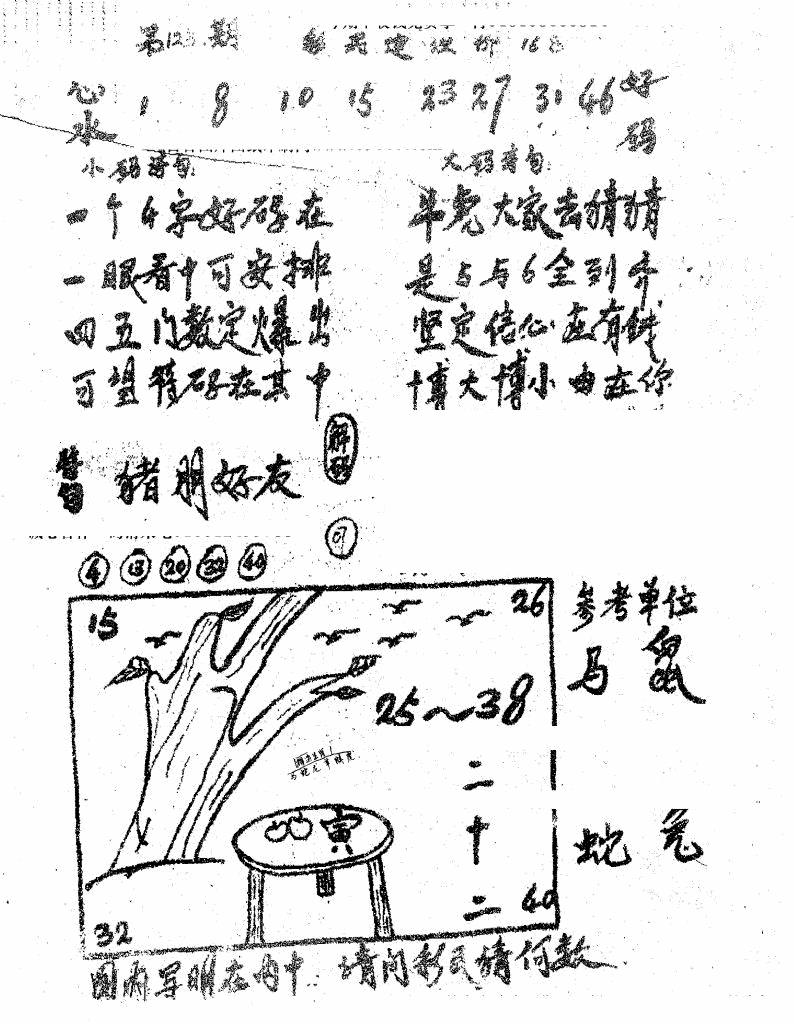 第123期 彩民建议价 168
心水 1 8 10 15 23 27 31 46 好码
小码诗句: 大码诗句:
一个4字好码在 斗虎大家去猜猜
一眼看中可安排 是5与6全到齐
四五门数定爆出 坚定信心在有钱
可望特码在其中 博大博小由在你
解码
猪朋好友
07
4 13 20 32 40
15 26
参考单位
马 鼠
25～38
二十二
寅
蛇 兔
32 40
图两写明在内中 请问彩民猜何数